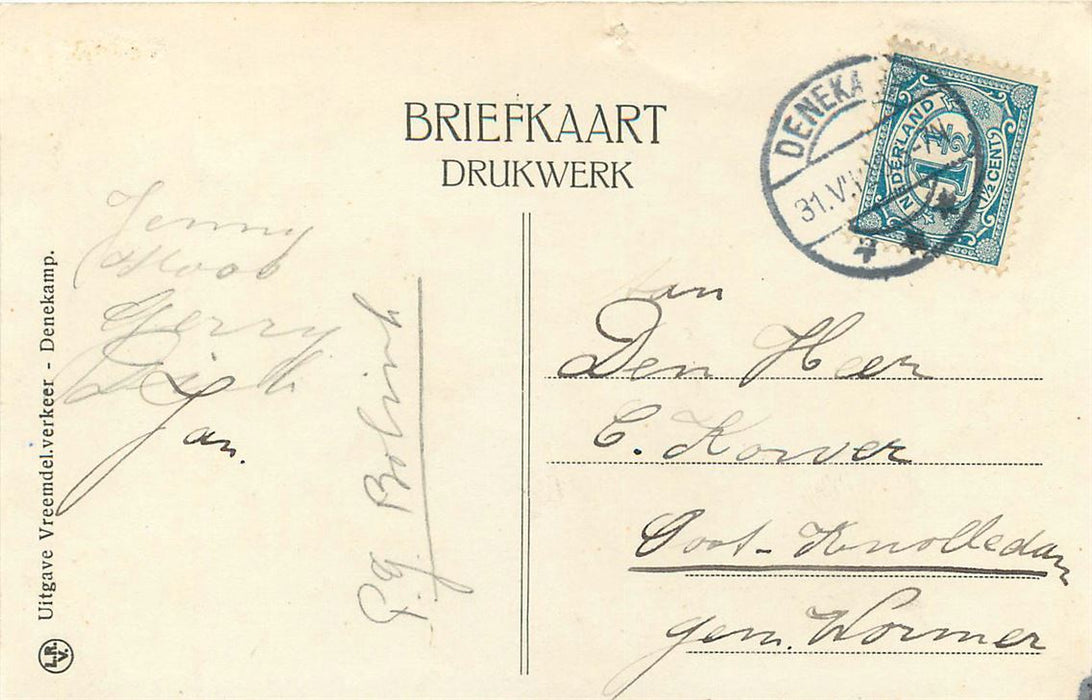 BRIEFKAART
DRUKWERK
DENEKA
31.V
-7N
NEDERLAND
1½
1½ CENT
Jenny
Gerry
Dirk
Jan.
P.G. Bolink
Aan
Den Heer
C. Korver
Oost-Knolledam
gem. Wormer
Uitgave Vreemdel.verkeer - Denekamp.
L.R.
V.